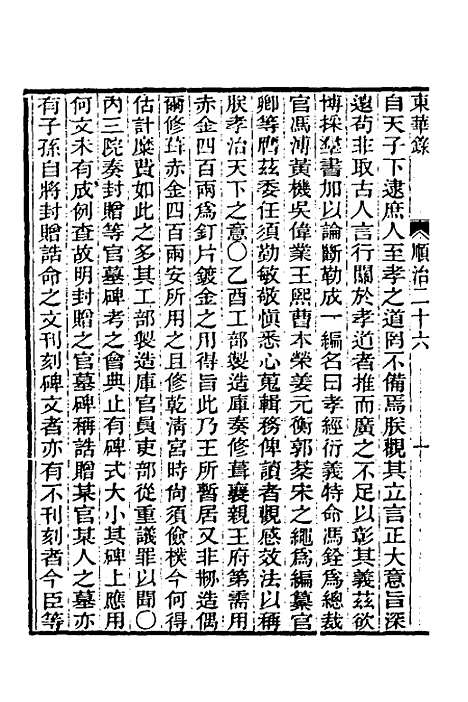 東華錄 順治二十六 十
自天子下逮庶人至孝之道罔不備焉朕觀其立言正大意旨深
遠苟非取古人言行關於孝道者推而廣之不足以彰其義茲欲
博採羣書加以論斷勒成一編名曰孝經衍義特命馮銓爲總裁
官馮溥黃機吳偉業王熙曹本榮姜元衡郭棻宋之繩爲編纂官
卿等膺茲委任須勤敏敬愼悉心蒐輯務俾讀者觀感效法以稱
朕孝治天下之意〇乙酉工部製造庫奏修葺襄親王府第需用
赤金四百兩爲釘片鍍金之用得旨此乃王所暫居又非剏造偶
爾修葺赤金四百兩安所用之且修乾清宮時尙須儉樸今何得
估計糜費如此之多其工部製造庫官員吏部從重議罪以聞〇
內三院奏封贈等官墓碑考之會典止有碑式大小其碑上應用
何文未有成例查故明封贈之官墓碑稱誥贈某官某人之墓亦
有子孫自將封贈誥命之文刊刻碑文者亦有不刊刻者今臣等